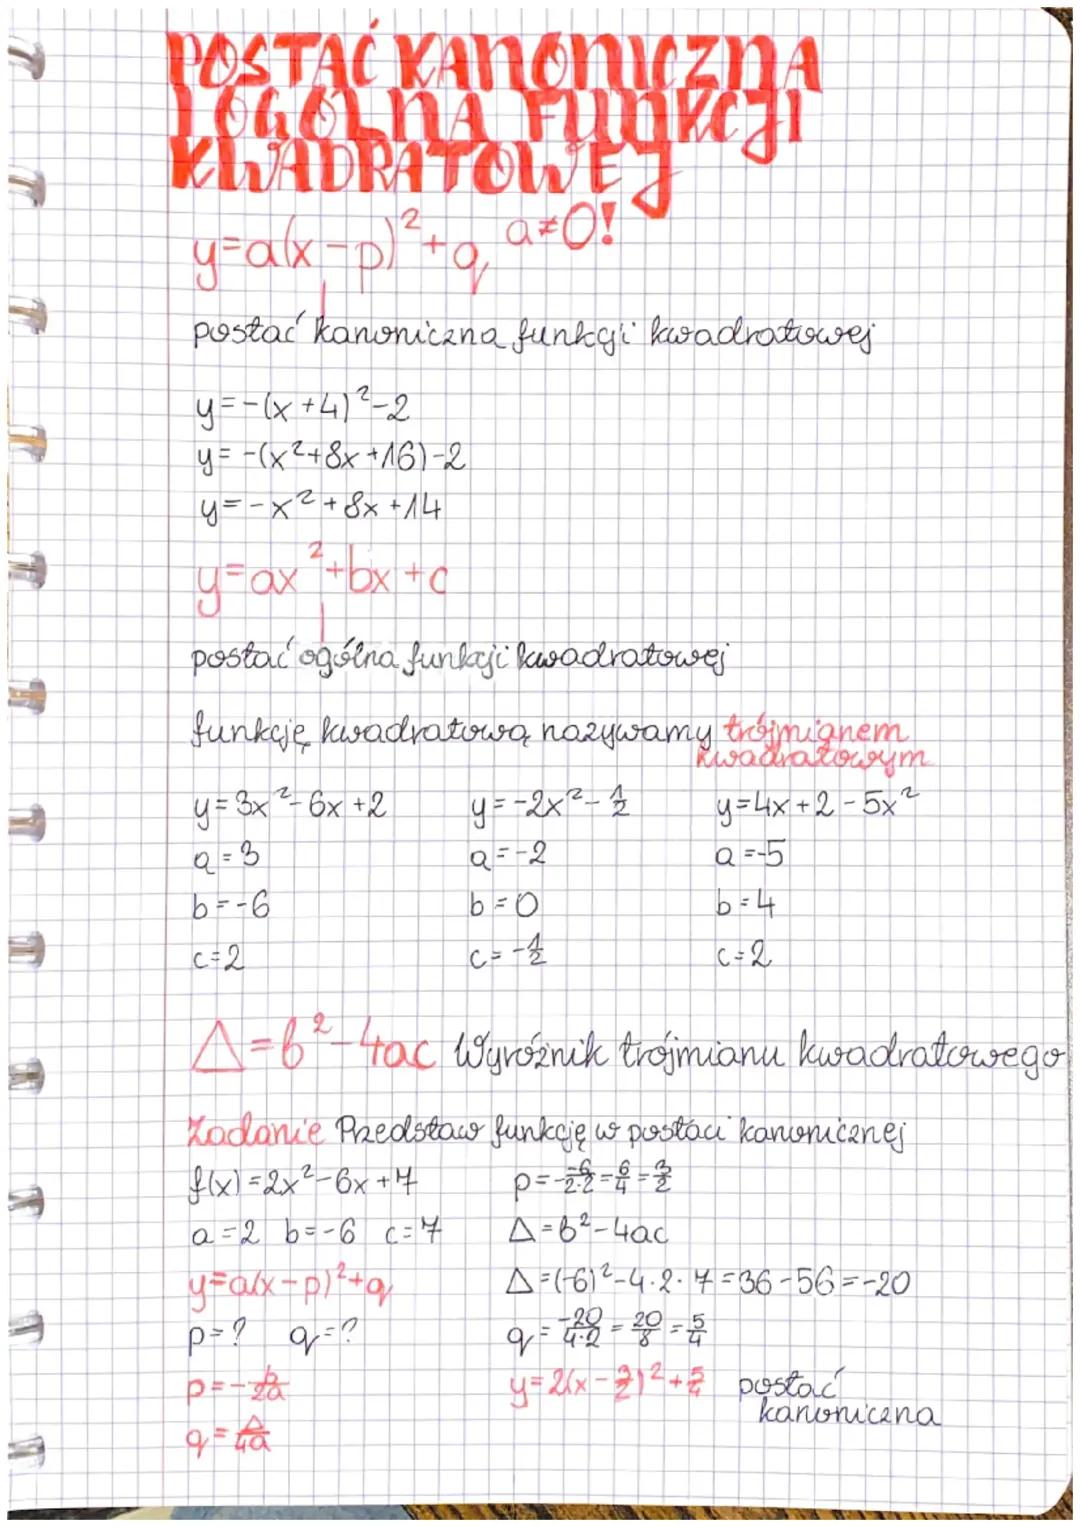 POSTAĆ KANONICZNA
I OGÓLNA FUNKCJI
KWADRATOWEJ
y=a(x-p)²+q, a≠0!
postać kanoniczna funkcji kwadratowej
y=-(x+4)²-2
y=-(x²+8x+16)-2
y=-x²+8x+14
y=ax²+bx+c
postać ogólna funkcji kwadratowej
funkcję kwadratową nazywamy trójmianem
kwadratowym
y=3x²-6x+2 y=-2x²-½ y=4x+2-5x²
a=3 a=-2 a=-5
b=-6 b=0 b=4
c=2 c=-½ c=2
△=b²-4ac Wyróżnik trójmianu kwadratowego
Zadanie Przedstaw funkcję w postaci kanonicznej
f(x)=2x²-6x+7 p=-\frac{-6}{2·2}=\frac{6}{4}=\frac{3}{2}
a=2 b=-6 c=7 △=b²-4ac
y=a(x-p)²+q △=(-6)²-4·2·7=36-56=-20
p=? q=? q=\frac{-20}{4·2}=\frac{20}{8}=\frac{5}{4}
p=-\frac{b}{2a} y=2(x-\frac{3}{2})²+\frac{5}{2} postać
kanoniczna
q=\frac{△}{4a}